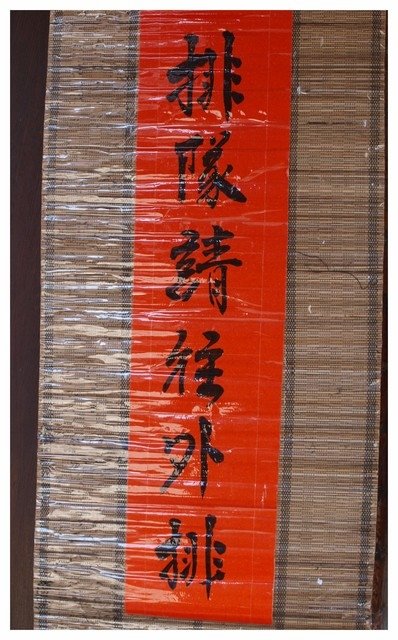 排隊請往外排